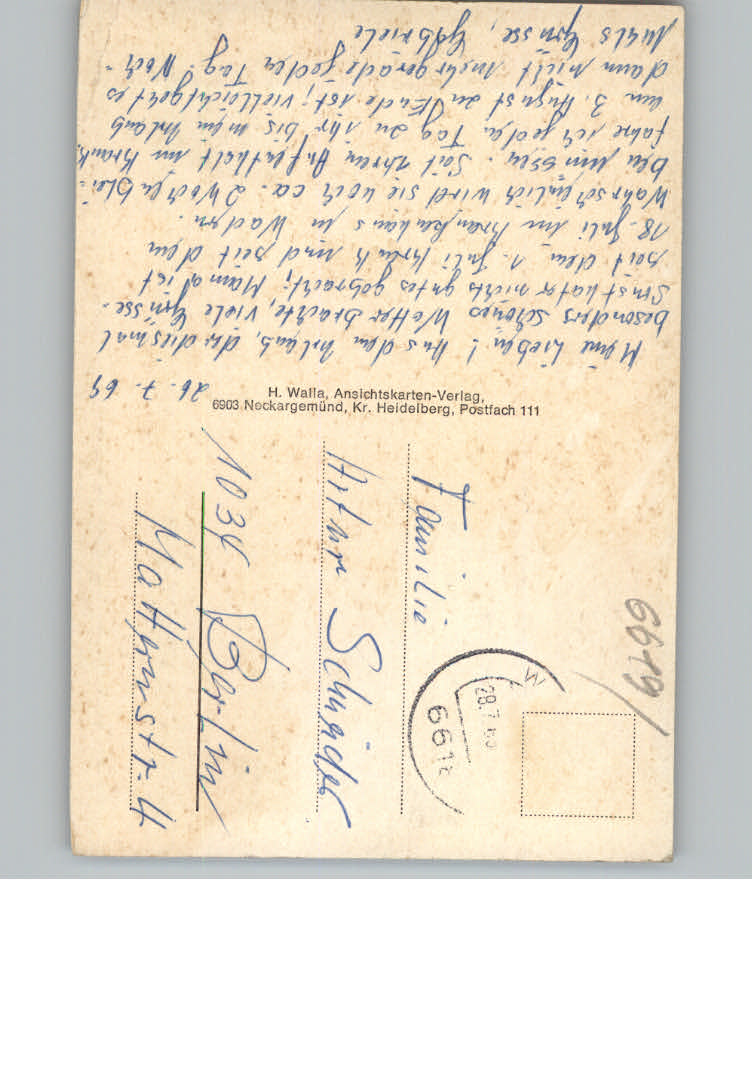 26. 7. 69
Meine Lieben! Aus dem Urlaub, der diesmal
besonders schönes Wetter brachte, viele Grüsse.
Sonst hat er nichts gutes gebracht; Mama ist
seit dem 1. Juli krank und seit dem
18. Juli im Krankenhaus in Wadern.
Wahrscheinlich wird sie noch ca. 2 Wochen blei=
ben müssen. Seit ihrem Aufenthalt im Krank.
fahre ich jeden Tag zu ihr bis mein Urlaub
am 3. August zu Ende ist; vielleicht geht es
dann nicht mehr gerade jeden Tag. Noch=
mals Grüsse, Gabriele
H. Walla, Ansichtskarten-Verlag,
6903 Neckargemünd, Kr. Heidelberg, Postfach 111
Familie
Artur Schneider
1034 Berlin
Matternstr. 4
28.7.69
661
6619